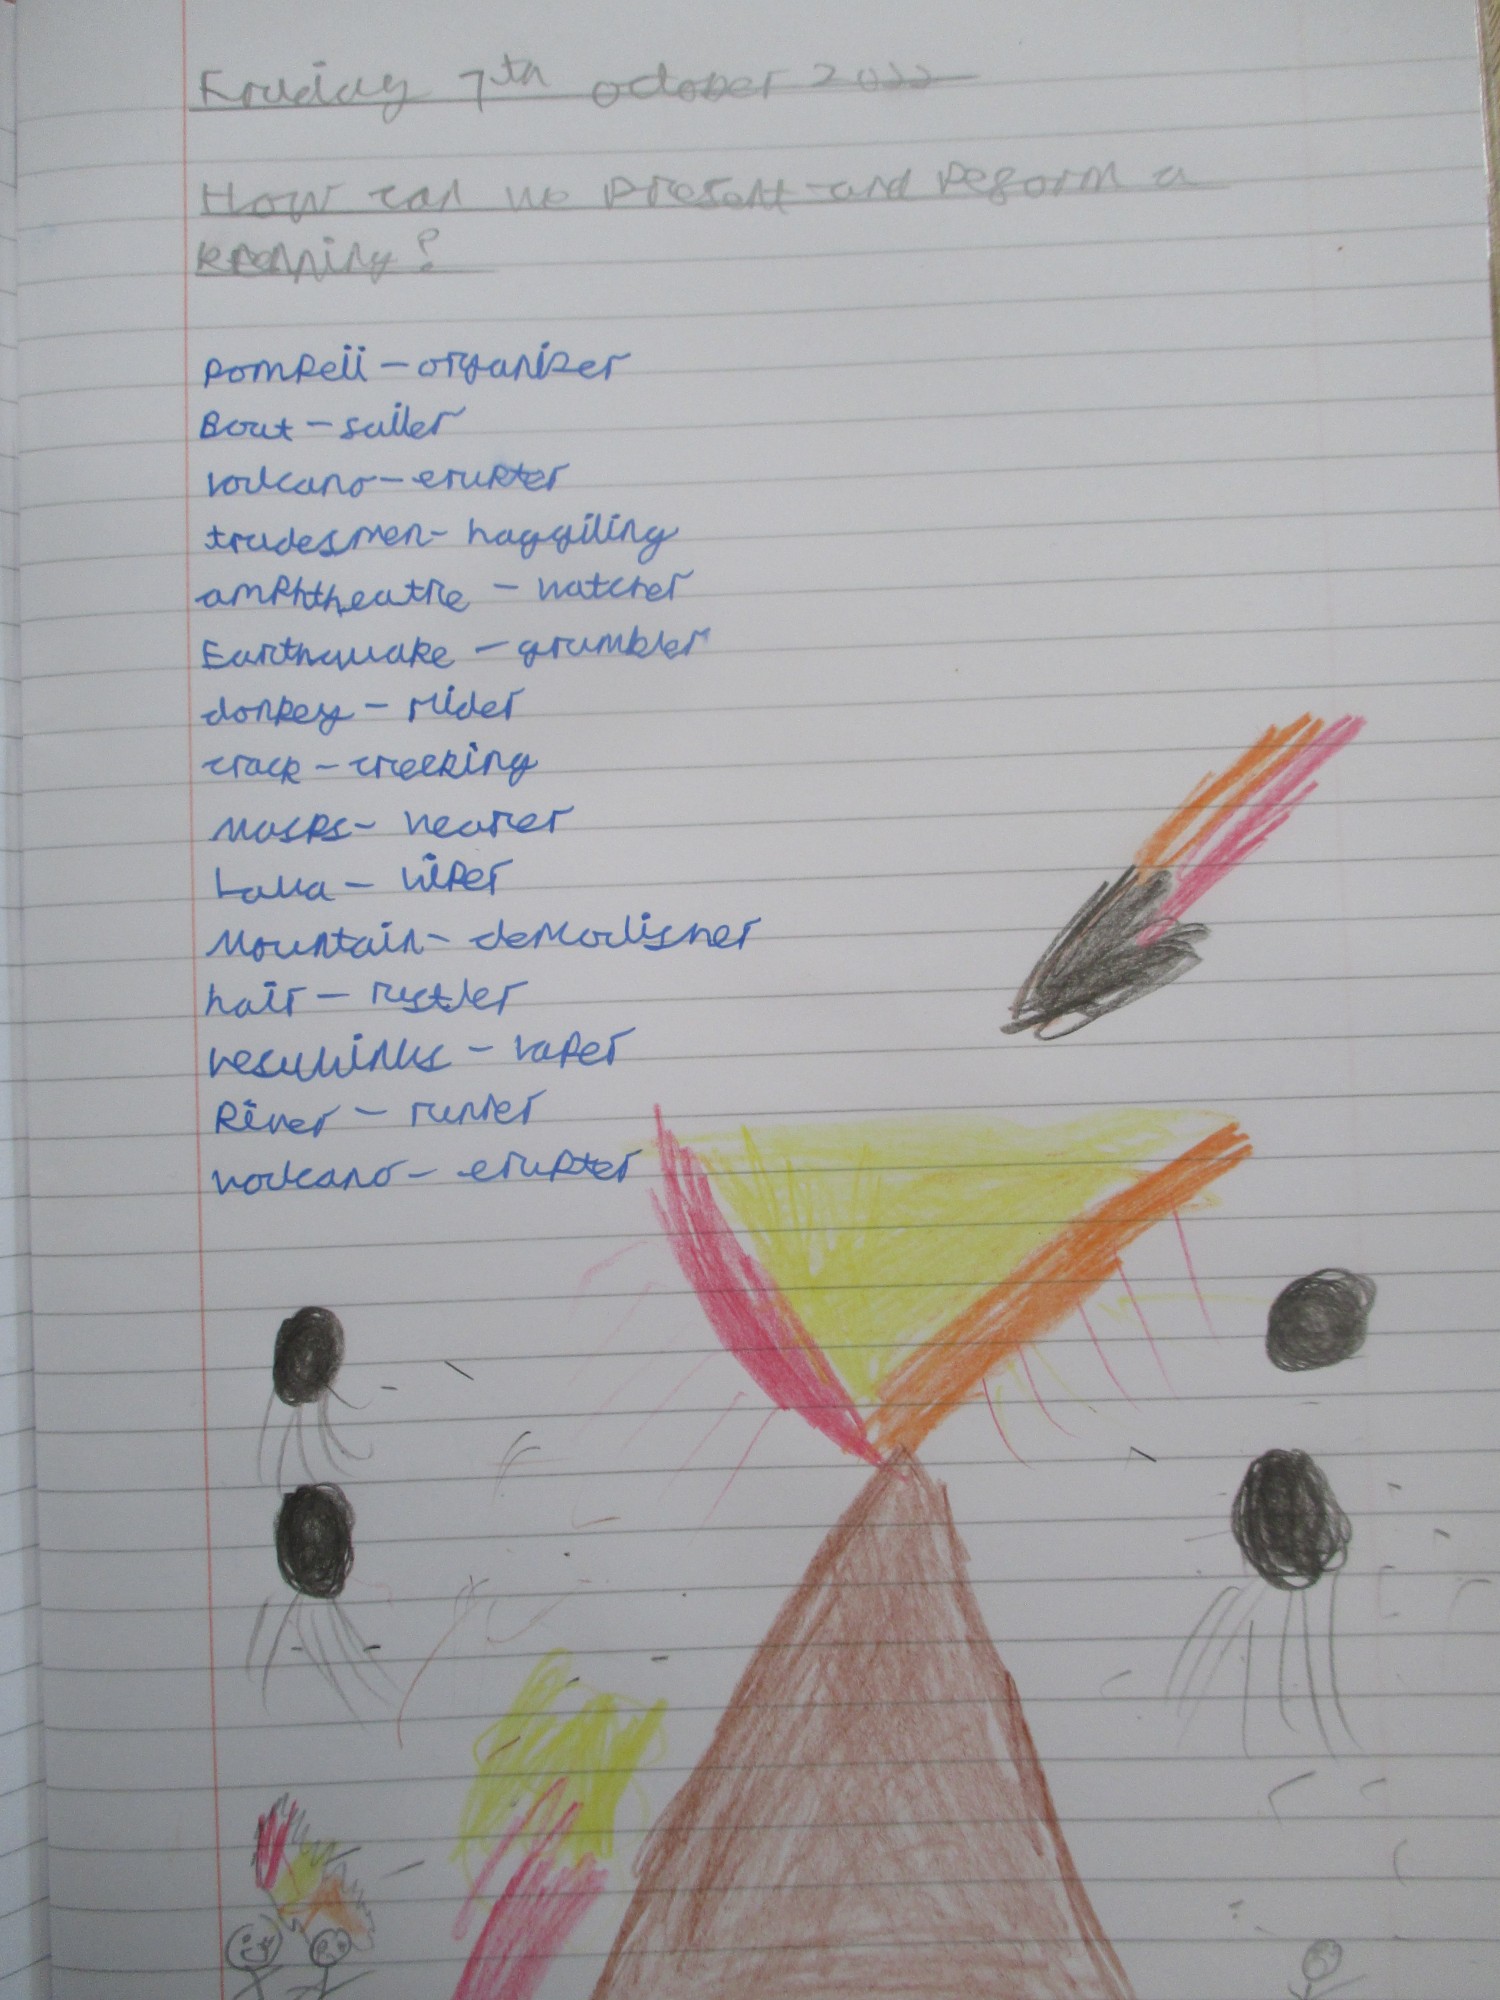 Friday 7th october 2022
How can we present and pegorm a
kenning?
pompeii - organizer
Boat - sailer
volcano - erupter
tradesmen - haggiling
amphtheatre - watcher
Earthquake - grumbler
donkey - rider
crack - creeking
Masks - wearer
Lava - viper
Mountain - demolisher
hair - rustler
vesuvius - vaper
River - runner
volcano - erupter